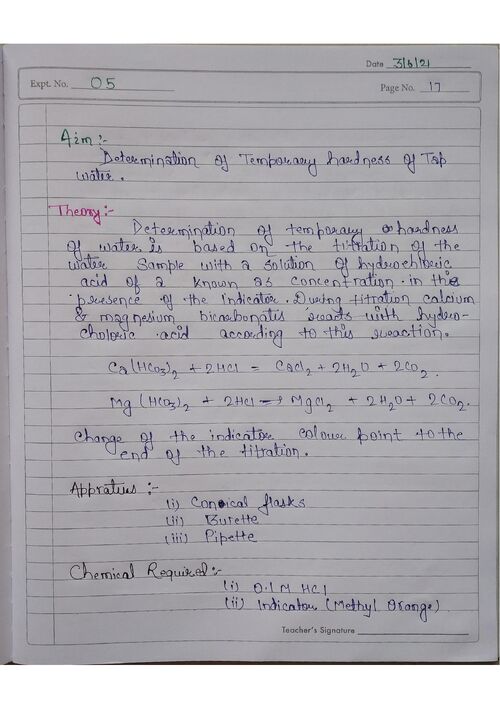 Date 3/6/21
Expt. No. 05
Page No. 17
Aim :-
Determination of Temporary hardness of Tap
water.
Theory :-
Determination of temporary hardness
of water is based on the titration of the
water sample with a solution of hydrochloric
acid of a known as concentration in this
presence of the indicator. During titration calcium
& magnesium bicarbonatis reacts with hydro-
choloric acid according to this reaction.
Ca(HCO3)2 + 2HCl = CaCl2 + 2H2O + 2CO2.
Mg(HCO3)2 + 2HCl → MgCl2 + 2H2O + 2CO2.
Change of the indicator colour point to the
end of the titration.
Appratius :-
(i) Conoical flasks
(ii) Burette
(iii) Pipette
Chemical Required :-
(i) 0.1 M HCl
(ii) Indicator (Methyl Orange)
Teacher's Signature